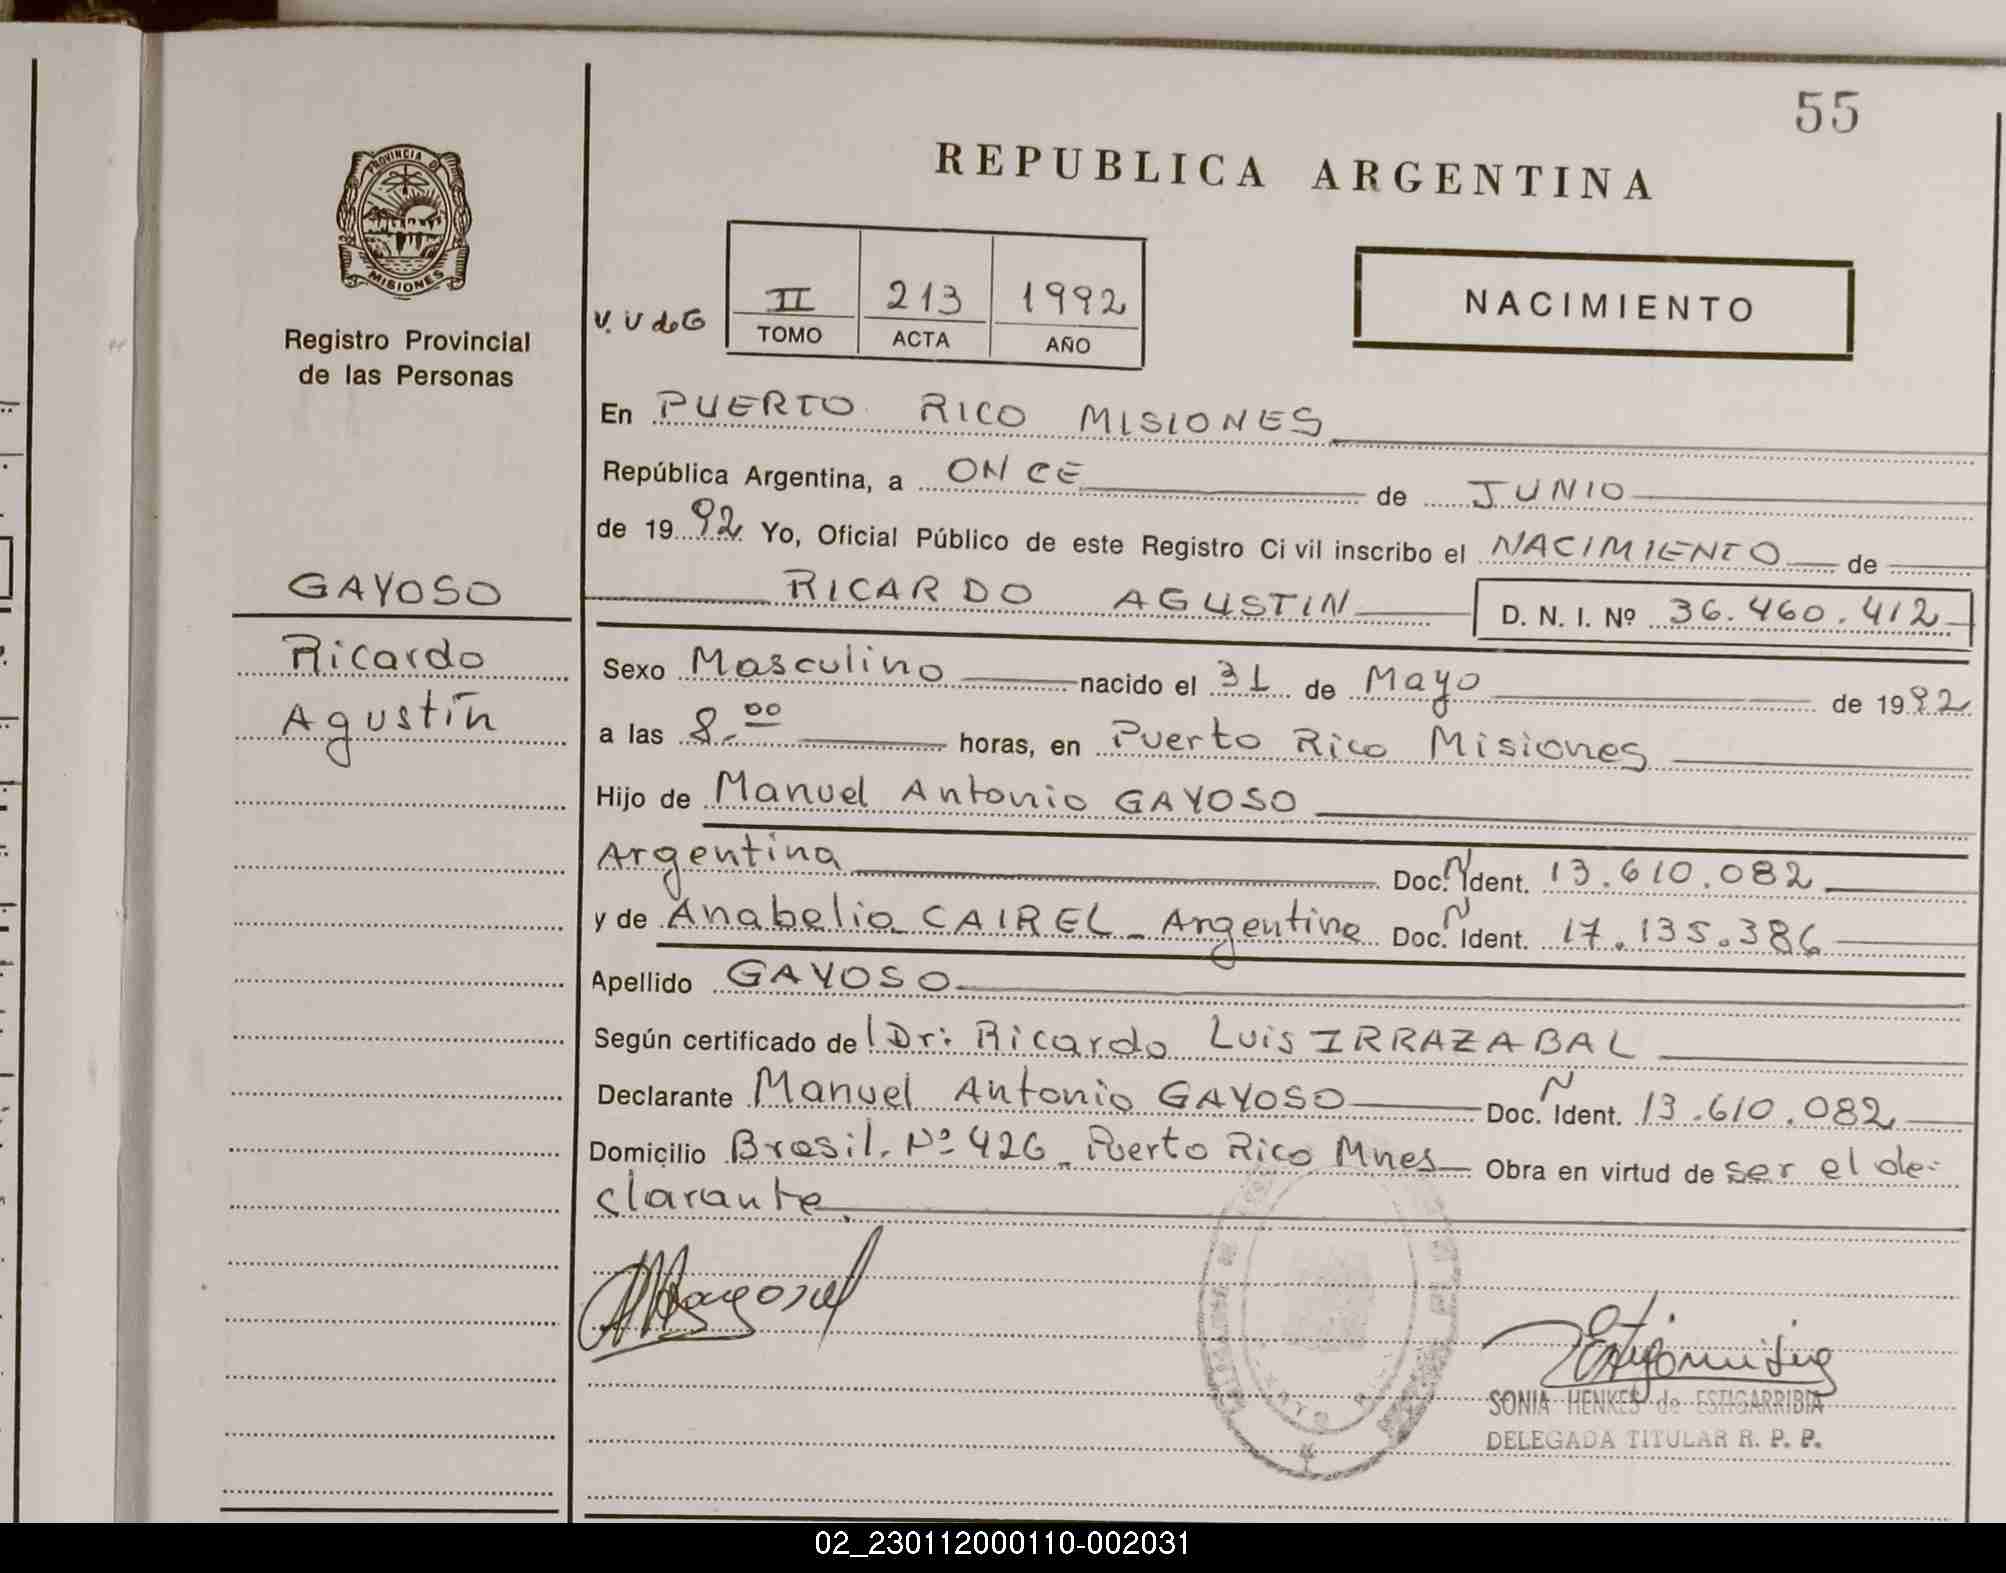 55
REPUBLICA ARGENTINA
PROVINCIA DE
MISIONES
Registro Provincial
de las Personas
V. U de G
II 213 1992
TOMO ACTA AÑO
NACIMIENTO
En PUERTO RICO MISIONES
República Argentina, a ONCE de JUNIO
de 1992 Yo, Oficial Público de este Registro Civil inscribo el NACIMIENTO de
RICARDO AGUSTIN D. N. I. Nº 36.460.412
GAYOSO
Ricardo
Agustín
Sexo Masculino nacido el 31 de Mayo de 1992
a las 8.00 horas, en Puerto Rico Misiones
Hijo de Manuel Antonio GAYOSO
Argentina Doc. N Ident. 13.610.082
y de Anabelia CAIREL - Argentina Doc. N Ident. 17.135.386
Apellido GAYOSO
Según certificado de Dr: Ricardo Luis IRRAZABAL
Declarante Manuel Antonio GAYOSO Doc. N Ident. 13.610.082
Domicilio Brasil. Nº 426 - Puerto Rico Mnes Obra en virtud de ser el de-
clarante.
SONIA HENKES de ESTIGARRIBIA
DELEGADA TITULAR R. P. P.
02_230112000110-002031